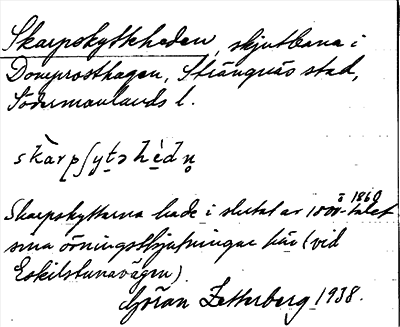 Skarpskytteheden, skjutbana i
Domprosthagen, Strängnäs stad,
Södermanlands l.
skàrpʃytəhèdn̥
å 1860
Skarpskyttarna hade i slutet av 1800-talet
sina övningsskjutningar här (vid
Eskilstunavägen).
Göran Zetterberg 1938.